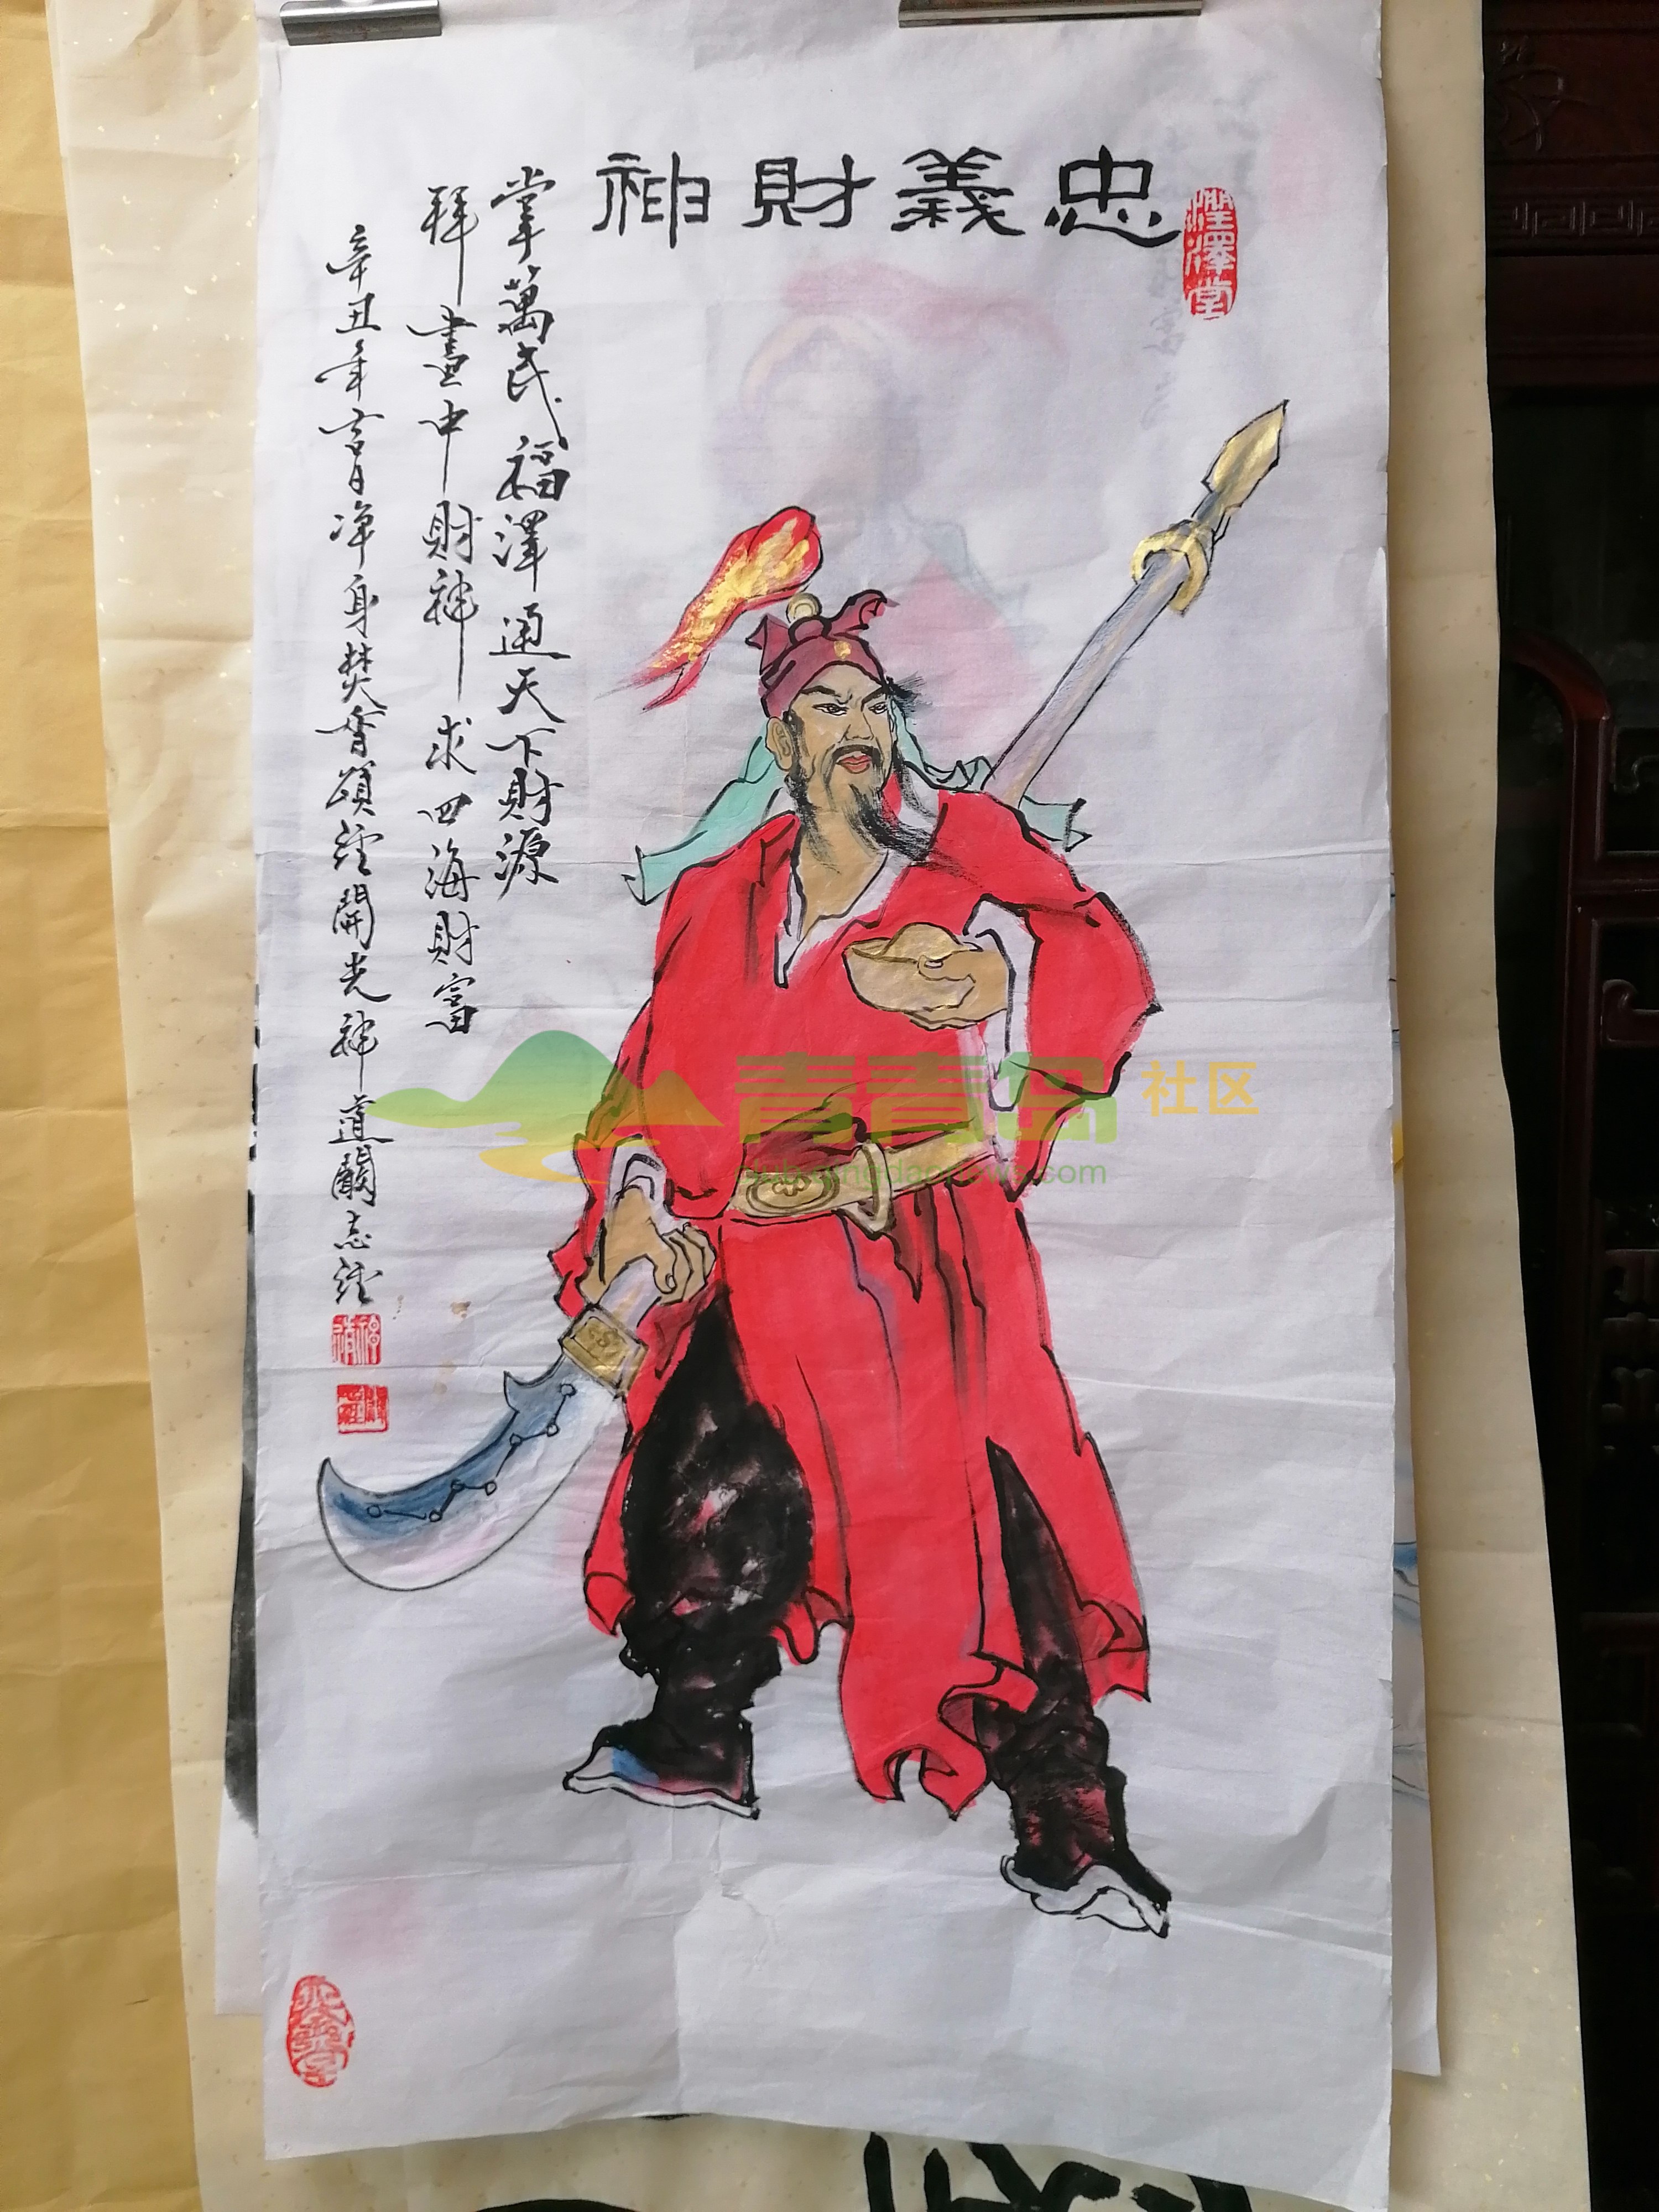 忠義財神
掌萬民福澤通天下財源
拜畫中財神求四海財富
辛丑年言月淨身焚香頌經開光神道闕志經
澤堂
青青岛社区
club.qingdaonews.com